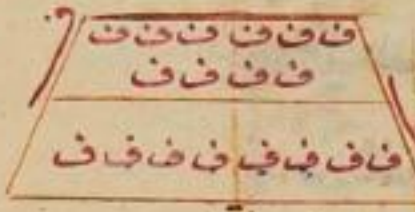 ف ف ف ف ف ف
ف ف ف ف
ف ف ف ف ف ف ف ف